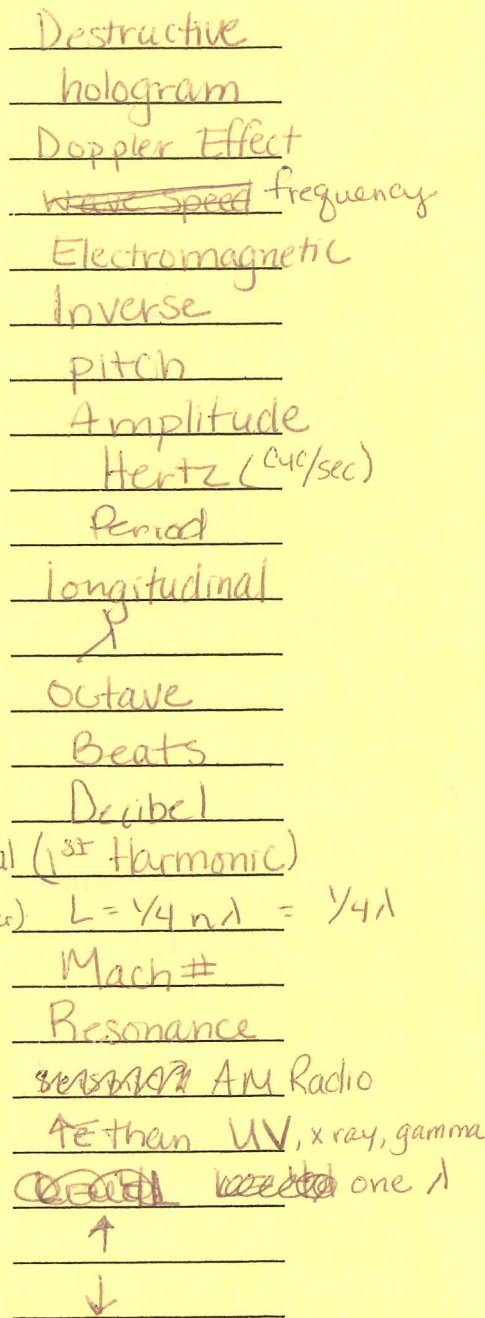 Destructive
hologram
Doppler Effect
Wave Speed frequency
Electromagnetic
Inverse
pitch
Amplitude
Hertz (cyc/sec)
Period
longitudinal
λ
octave
Beats
Decibel
al (1st Harmonic)
r) L = 1/4 n λ = 1/4 λ
Mach #
Resonance
AM Radio
↑E than UV, x ray, gamma
one λ
↑
↓